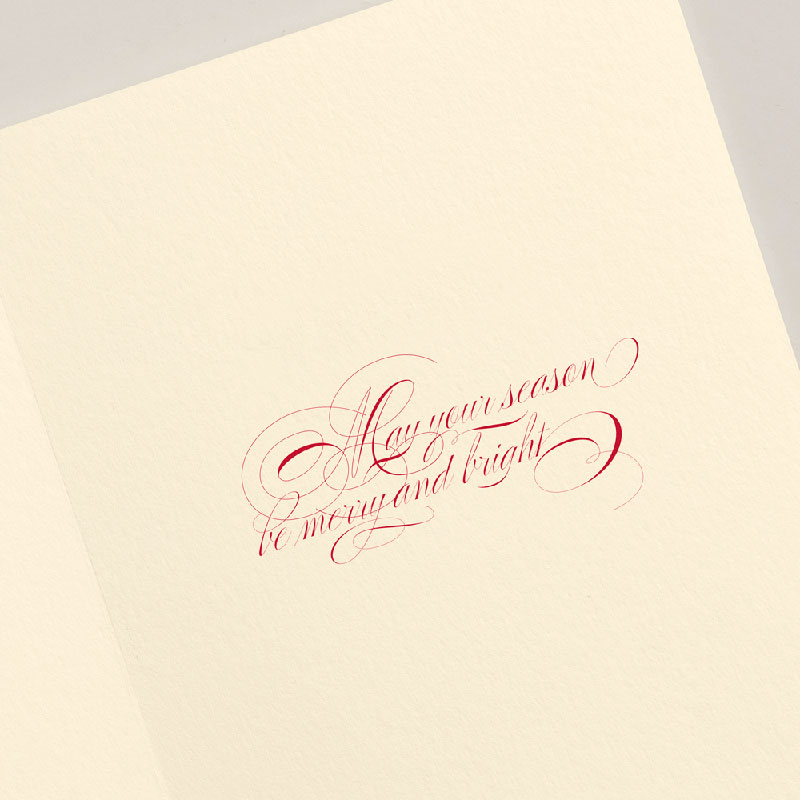 May your season
be merry and bright